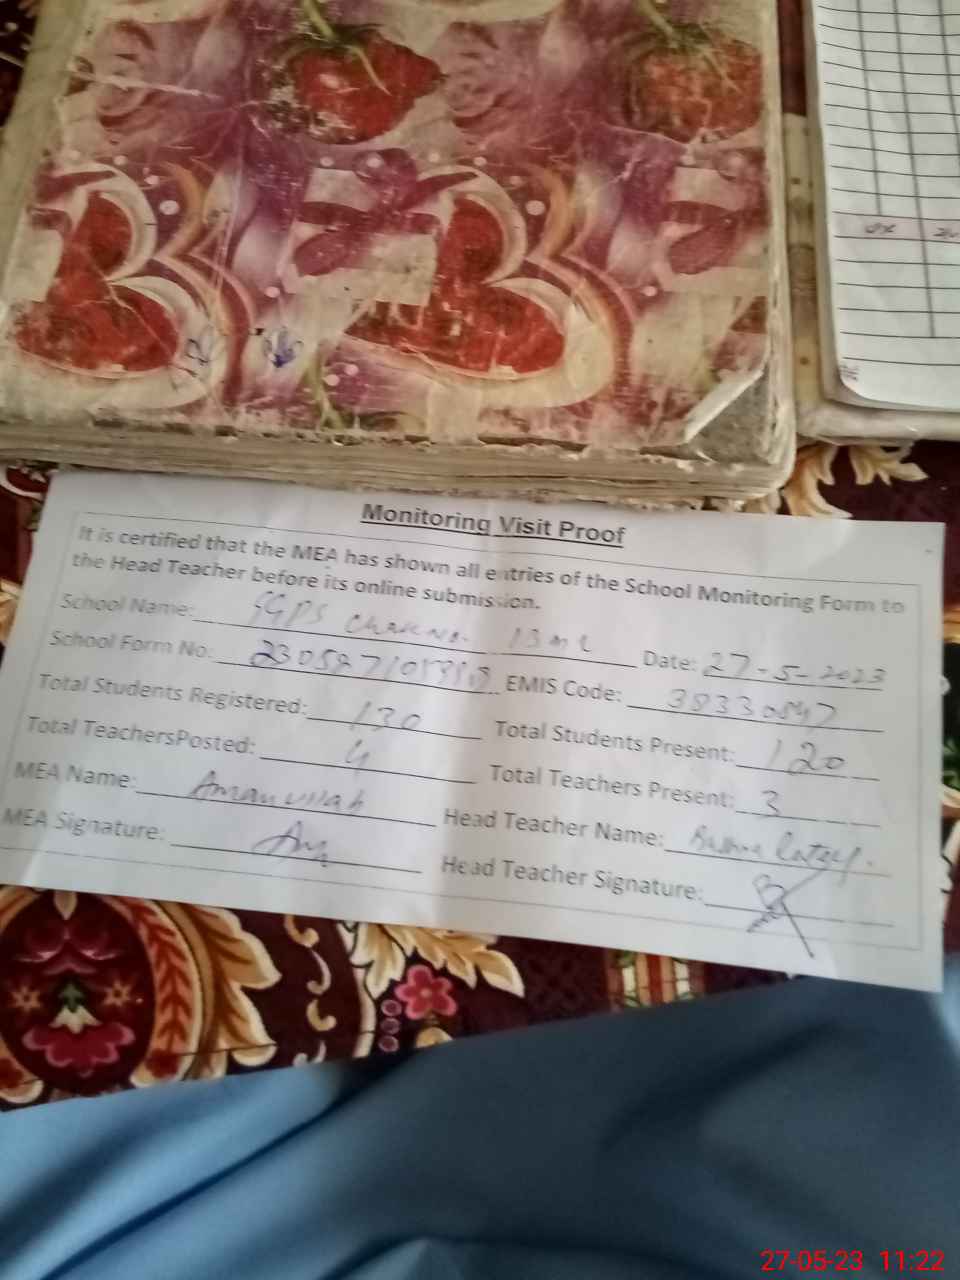 Monitoring Visit Proof
It is certified that the MEA has shown all entries of the School Monitoring Form to
the Head Teacher before its online submission.
School Name: GGPS Chak No. 13 ML Date: 27-5-2023
School Form No: EMIS Code: 38330547
Total Students Registered: 130 Total Students Present: 120
Total TeachersPosted: 4 Total Teachers Present: 3
MEA Name: Aman ullah Head Teacher Name:
MEA Signature: Head Teacher Signature:
27-05-23 11:22